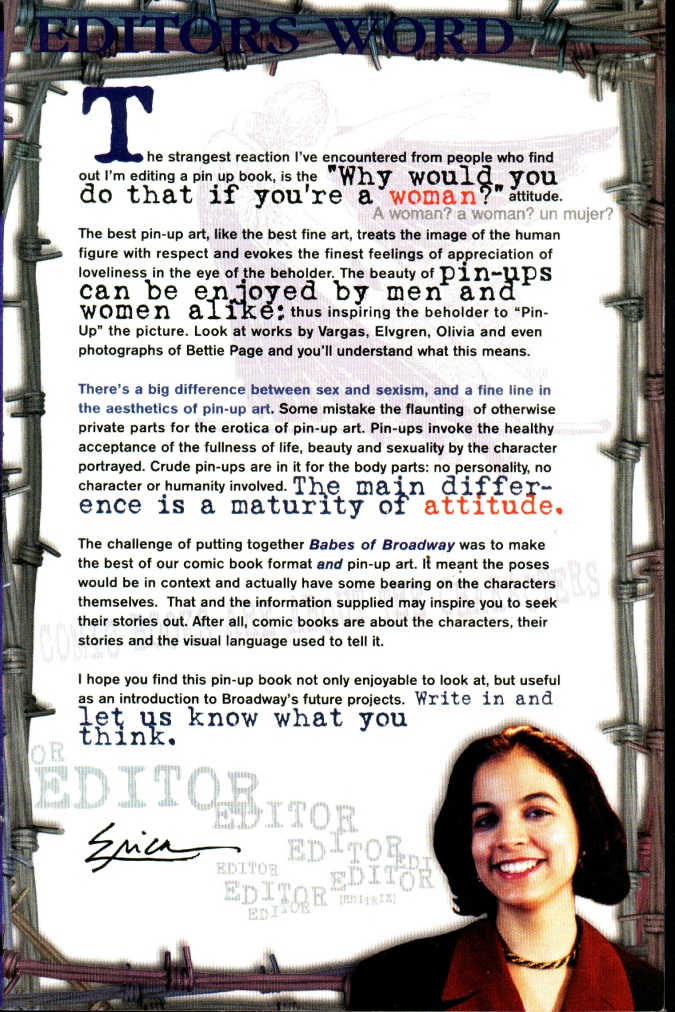 EDITORS WORD
The strangest reaction I've encountered from people who find
out I'm editing a pin up book, is the "Why would you
do that if you're a woman?" attitude.
A woman? a woman? un mujer?
The best pin-up art, like the best fine art, treats the image of the human
figure with respect and evokes the finest feelings of appreciation of
loveliness in the eye of the beholder. The beauty of pin-ups
can be enjoyed by men and
women alike; thus inspiring the beholder to “Pin-
Up” the picture. Look at works by Vargas, Elvgren, Olivia and even
photographs of Bettie Page and you'll understand what this means.
There's a big difference between sex and sexism, and a fine line in
the aesthetics of pin-up art. Some mistake the flaunting of otherwise
private parts for the erotica of pin-up art. Pin-ups invoke the healthy
acceptance of the fullness of life, beauty and sexuality by the character
portrayed. Crude pin-ups are in it for the body parts: no personality, no
character or humanity involved. The main differ-
ence is a maturity of attitude.
The challenge of putting together Babes of Broadway was to make
the best of our comic book format and pin-up art. It meant the poses
would be in context and actually have some bearing on the characters
themselves. That and the information supplied may inspire you to seek
their stories out. After all, comic books are about the characters, their
stories and the visual language used to tell it.
COMIC BOOKS ARE ABOUT THE CHARACTERS
I hope you find this pin-up book not only enjoyable to look at, but useful
as an introduction to Broadway's future projects. Write in and
let us know what you
think.
OR
EDITOR
EDITOR
EDITOR
EDI
EDITOR
EDITOR
EDITOR
(EDITRIX)
EDITOR
Erica